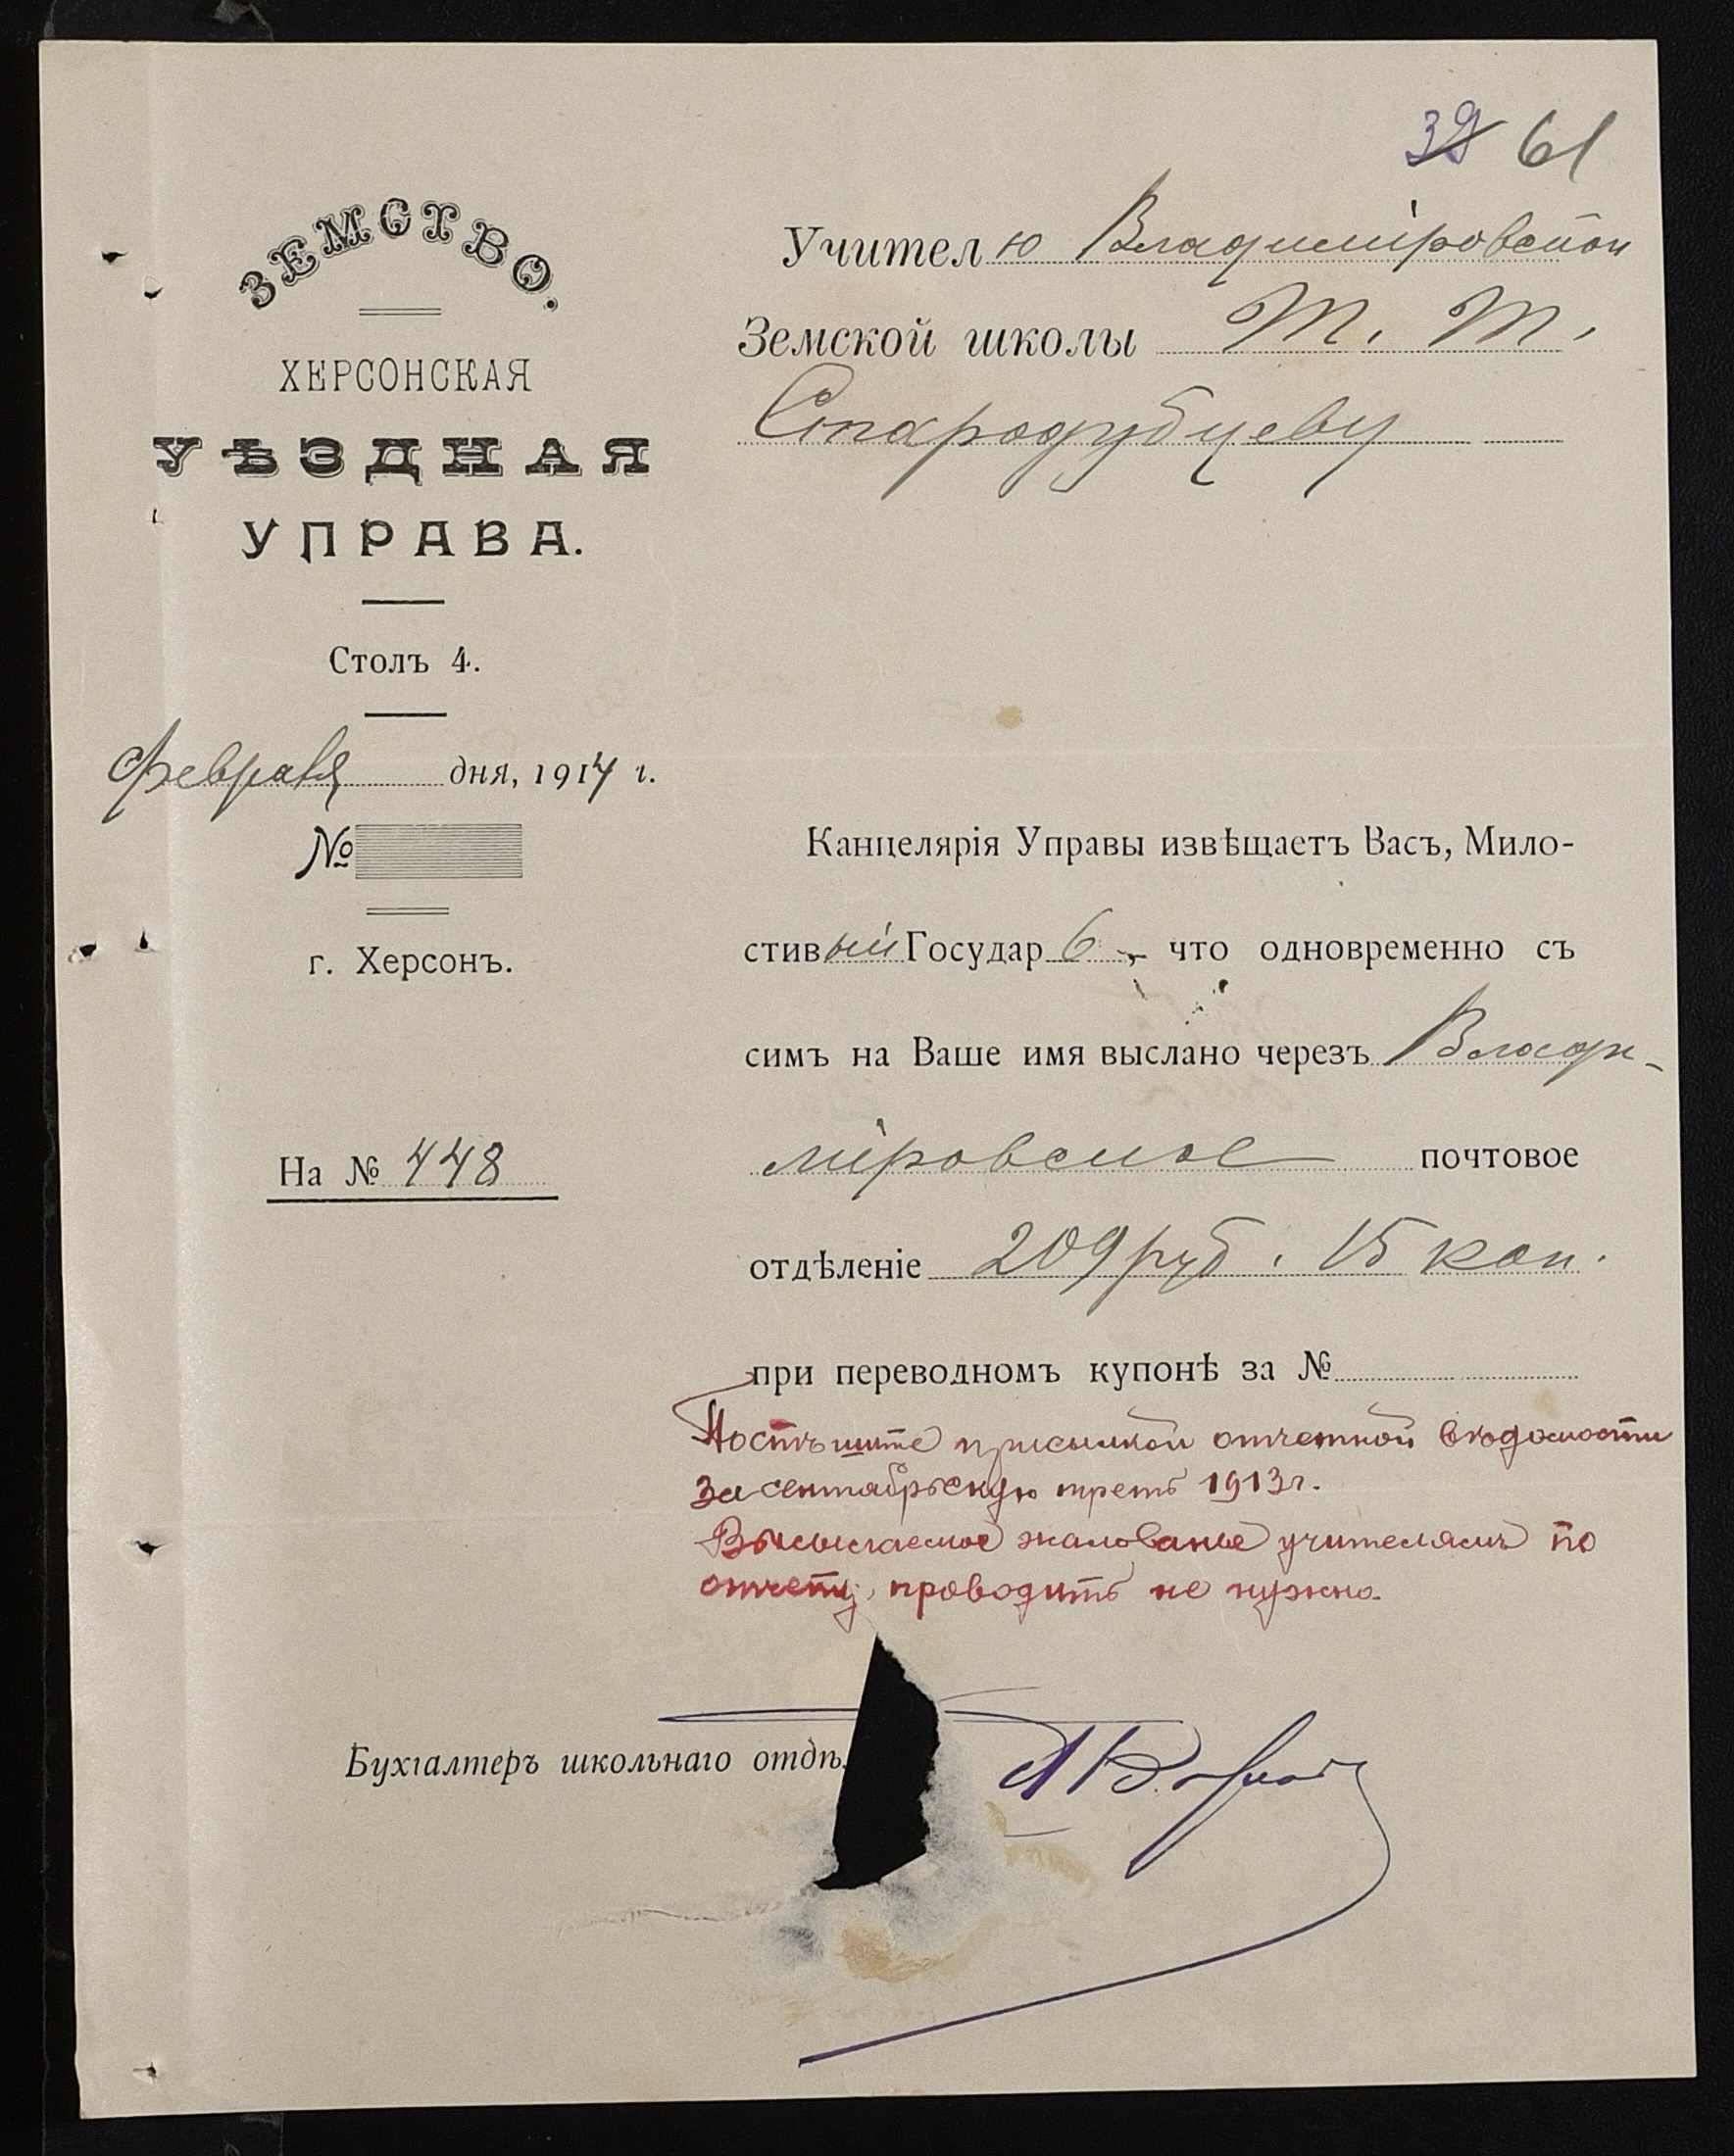 39 61
ЗЕМСТВО.
ХЕРСОНСКАЯ
УѢЗДНАЯ
УПРАВА.
Столъ 4.
Февраля дня, 1914 г.
№
г. Херсонъ.
На № 448
Учителю Владимiровской
Земской школы Т. Т.
Стародубцеву
Канцелярія Управы извѣщаетъ Васъ, Мило-
стивый Государь, что одновременно съ
симъ на Ваше имя выслано черезъ Влади-
міровское почтовое
отдѣленіе 209 руб. 15 коп.
при переводномъ купонѣ за №
Поспѣшите присылкой отчетной вѣдомости
за сентябрьскую треть 1913 г.
Высылаемое жалованье учителямъ по
отчету проводить не нужно.
Бухгалтеръ школьнаго отдѣ